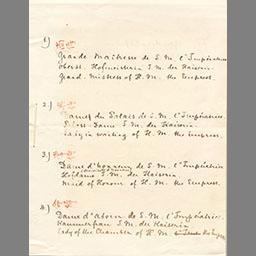 1)
Grande Maîtresse de S. M. l'Impératrice
Oberst. Hofmeisterin I. M. der Kaiserin
Grand. Mistress of H. M. the Empress.
2)
Dames du Palais de S. M. l'Impératrice.
Palast-Dame I. M. der Kaiserin
Lady in waiting of H. M. the Empress.
3)
Dame d'honneur de S. M. l'Impératrice
Hofdame I. M. der Kaiserin
Maid of Honour of H. M. the Empress.
4)
Dame d'atour de S. M. l'Impératrice.
Kammerfrau I. M. der Kaiserin
Lady of the Chamber of H. M. the Empress